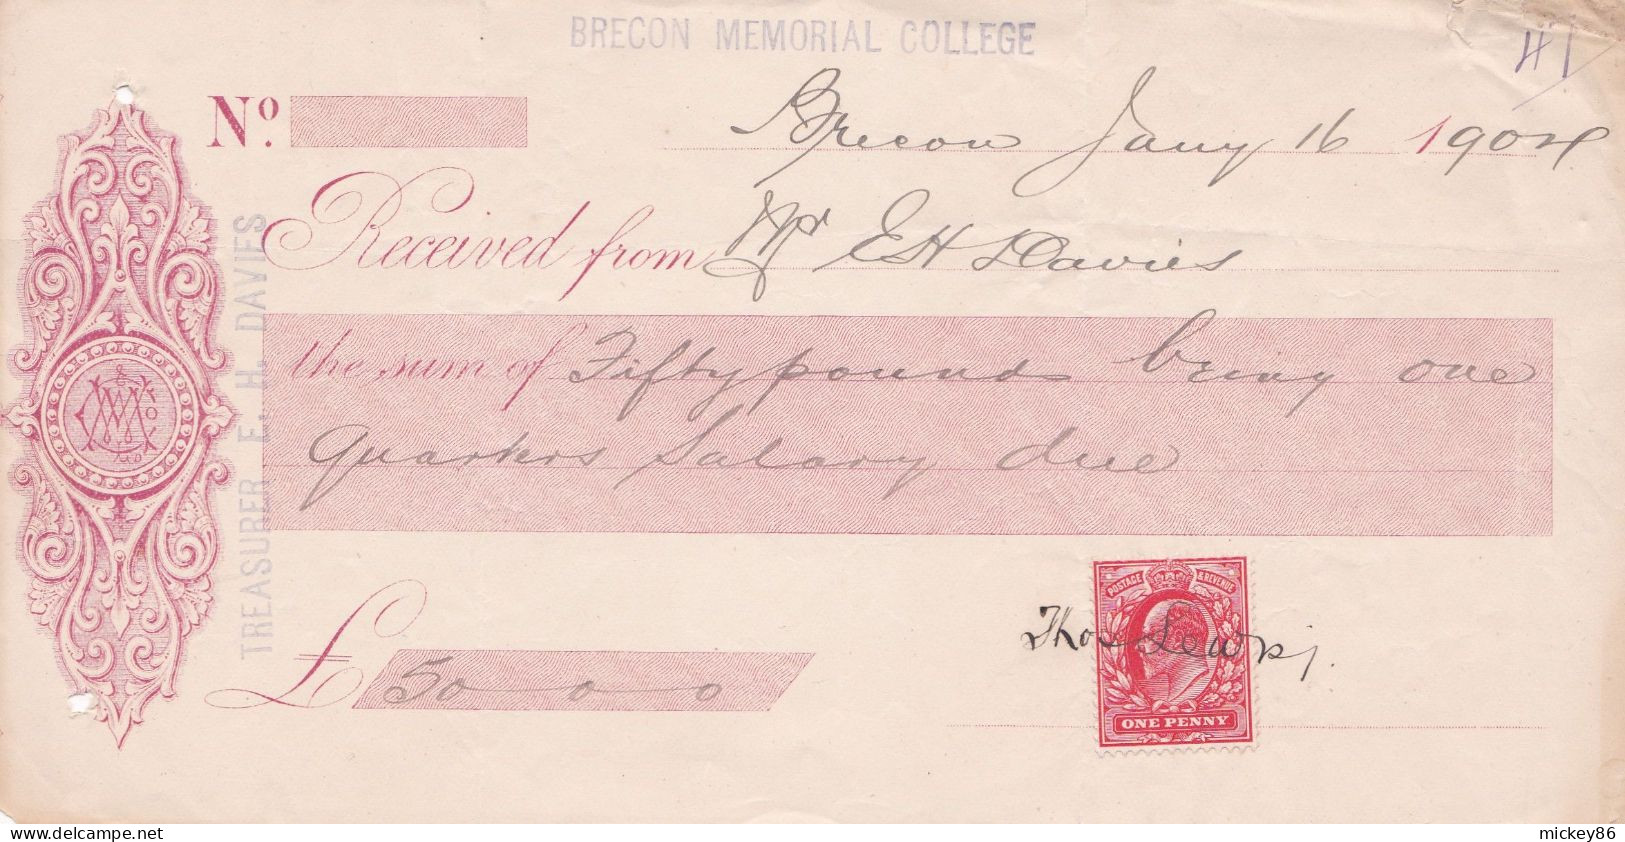 BRECON MEMORIAL COLLEGE
41
No.
Brecon Jany 16 1904
Received from Mr E H Davies
the sum of Fifty pounds being one
quarters Salary due
TREASURER E. H. DAVIES
£ 50 0 0
POSTAGE & REVENUE
Thos Lewis
ONE PENNY
www.delcampe.net
mickey86